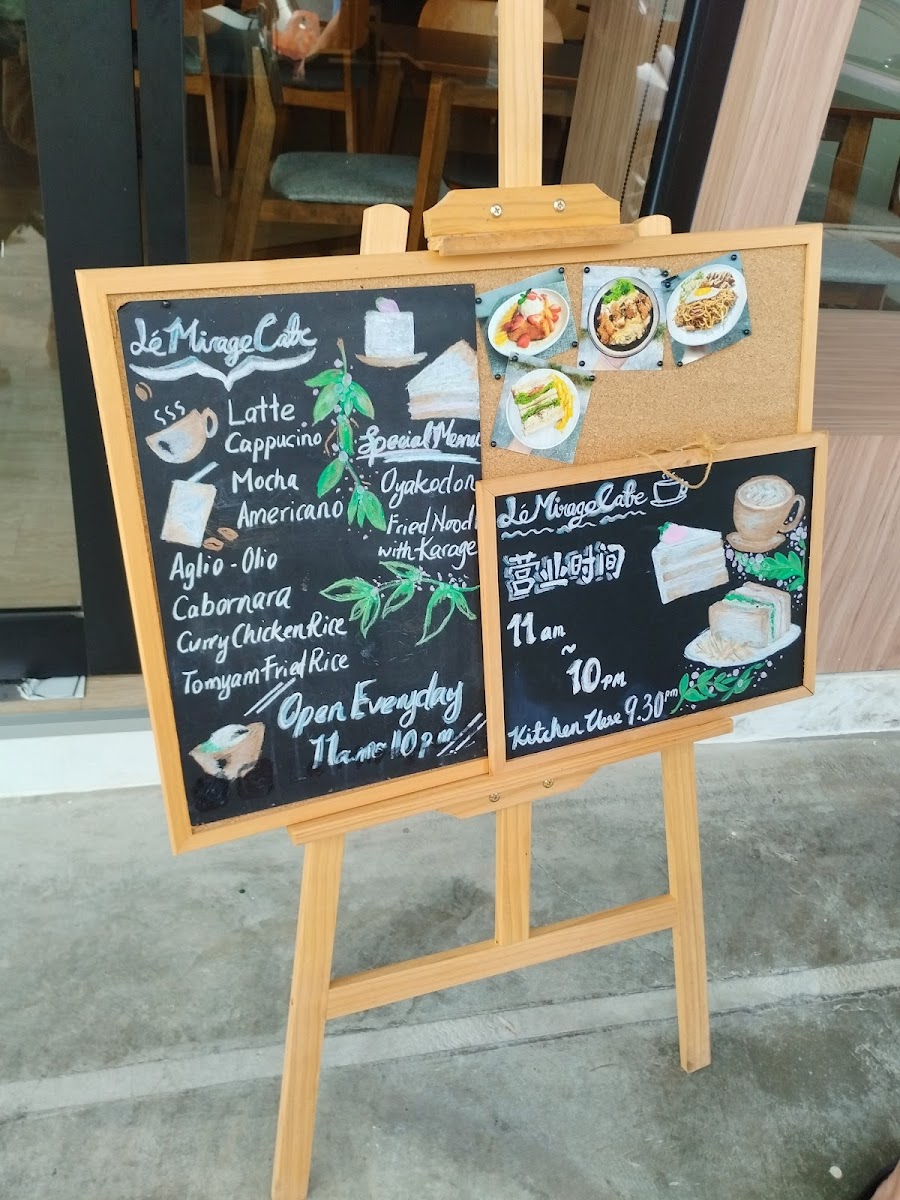 Lé Mirage Cafe
Latte
Cappucino
Mocha
Americano
Aglio - Olio
Cabornara
Curry Chicken Rice
Tomyam Fried Rice
Special Menu
Oyakodon
Fried Nood
with Karage
Open Everyday
11am~10pm
Lé Mirage Cafe
营业时间
11am
~
10pm
Kitchen Close 9.30pm